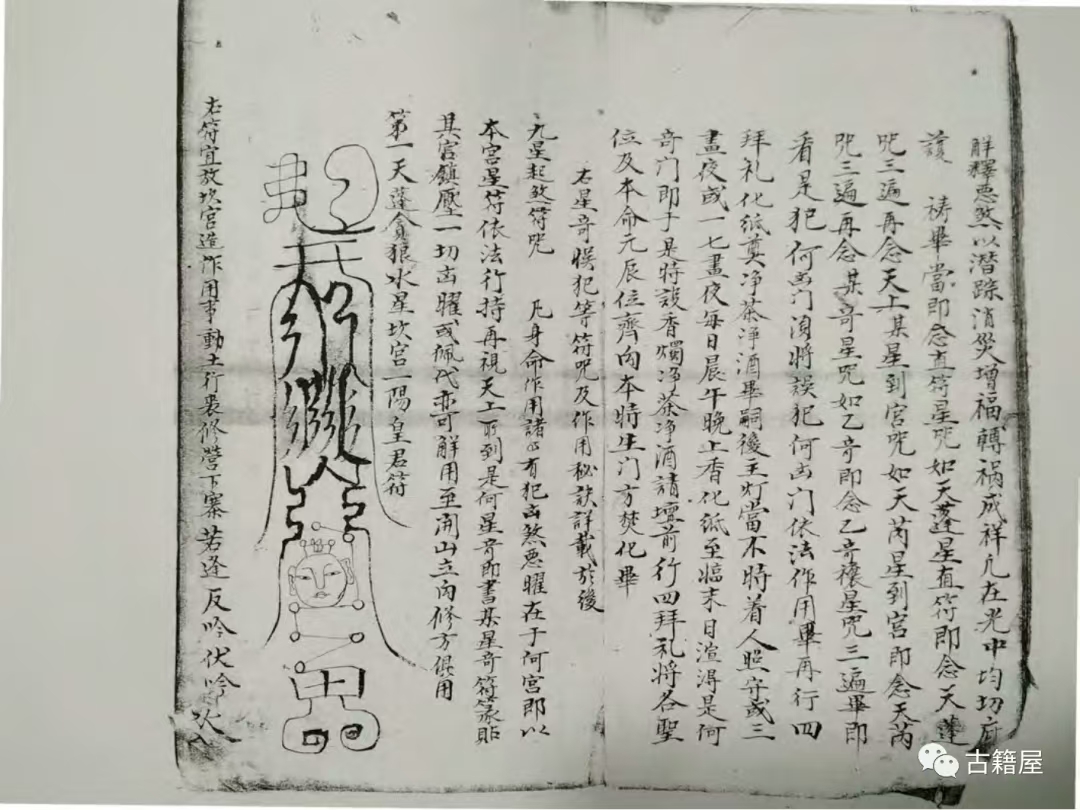 解釋惡煞以潛踪消災增福轉禍成祥凡在光中均切府
護 禱畢當即念直符星咒如天蓬星直符即念天蓬
咒三遍再念天上某星到宮咒如天芮星到宮即念天芮
咒三遍再念某奇星咒如乙奇即念乙奇禳星咒三遍畢即
看是犯何凶门須將誤犯何凶门依法作用畢再行四
拜礼化纸奠净茶净酒畢嗣後主灯當不時着人照守或三
晝夜或一七晝夜每日晨午晚上香化紙至臨末日渲得是何
奇门即于是時設香燭净茶净酒請壇前行四拜礼將各聖
位及本命元辰位齊向本時生门方焚化畢
右星奇誤犯等符咒及作用秘訣詳載於後
九星起煞符咒 凡身命作用諸㕥有犯凶煞惡曜在于何宮即以
本宮星符依法行持再視天上所到是何星奇即書某星奇符篆貼
其宮鎮壓一切凶曜或佩代亦可解用至開山立向修方俱用
第一天蓬貪狼水星坎宮一陽皇君符
右符宜放坎宮造作用事動土行喪修營下寨若逢反吟伏吟
古籍屋